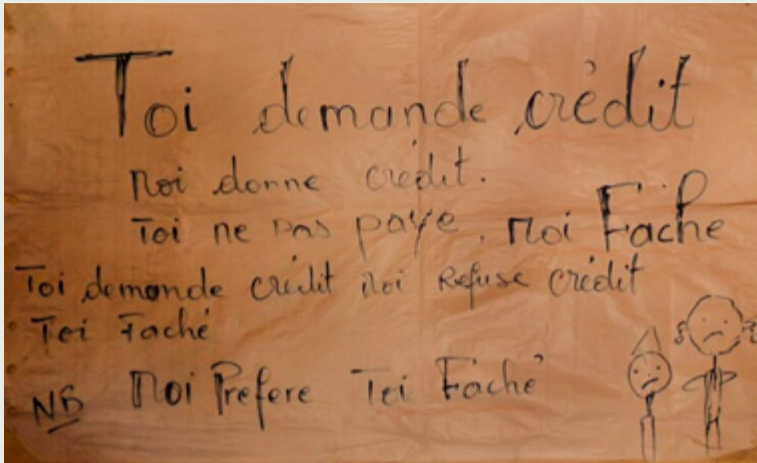 Toi demande crédit
Moi donne crédit.
Toi ne pas paye, Moi Fache
Toi demande crédit Moi Refuse crédit
Toi Faché
NB Moi Prefere Toi Faché